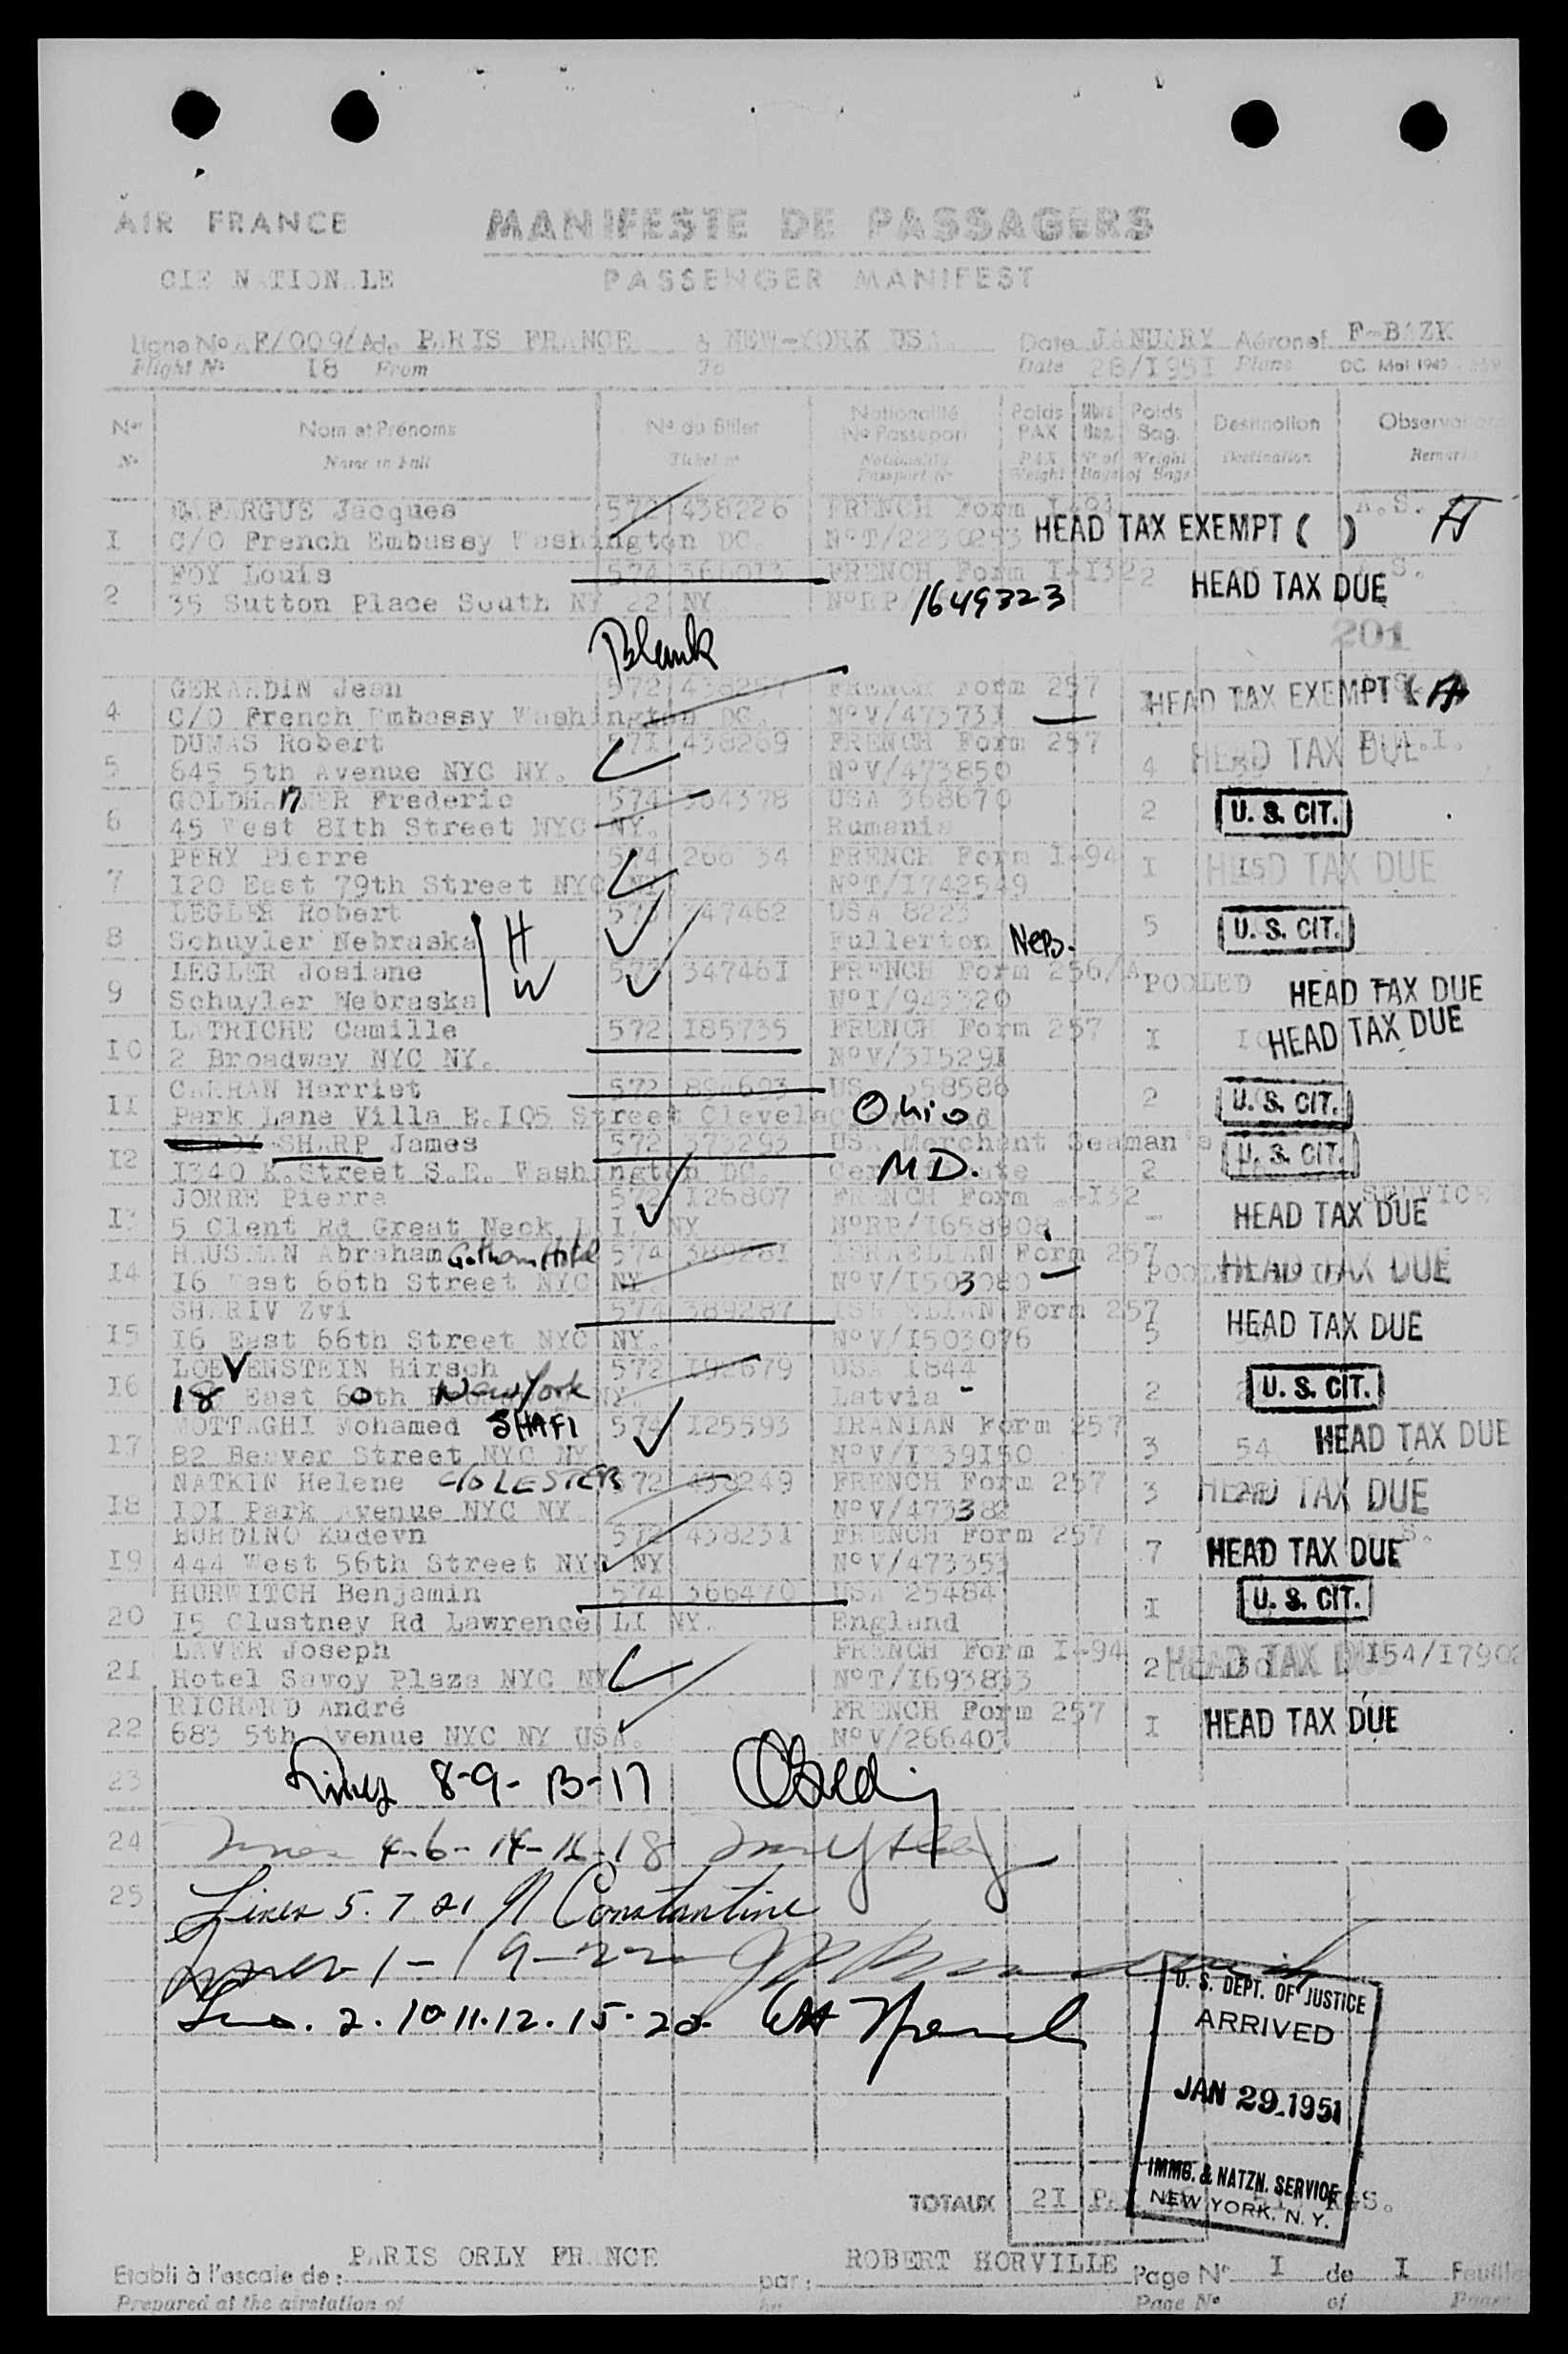 AIR FRANCE MANIFESTE DE PASSAGERS
CIE NATIONALE PASSENGER MANIFEST
Ligne No AF/009/A de PARIS FRANCE à NEW-YORK USA. Date JANUARY Aéronef F-BAZK
Flight No I8 From To Date 28/I951 Plane DC. Mol 1947
Nos Nom et Prénoms No du Billet Nationalité No Passeport Poids PAX Nbre Bag. Poids Bag. Destination
No Name in full Ticket no Nationality Passport No PAX Weight No of Bags Weight of Bags Destination Remarks
LAFARGUE Jacques 572 438226 FRENCH Form I-94 A.S.
I C/O French Embassy Washington DC. HEAD TAX EXEMPT ( )
FOY Louis 574 FRENCH Form I-I32 2
2 35 Sutton Place South NY 22 NY. NoRP/ 1649323 HEAD TAX DUE
201
Blank
GERARDIN Jean 572 438257 FRENCH Form 257
4 C/O French Embassy Washington DC. NoV/473731 HEAD TAX EXEMPT (
DUMAS Robert 57I 438269 FRENCH Form 257
5 645 5th Avenue NYC NY. NoV/473850 4 HEAD TAX DUE
GOLDHAMMER Frederic 574 364378 USA 368670
6 45 West 8Ith Street NYC NY. Rumania 2 U. S. CIT.
PERY Pierre 574 FRENCH Form I-94
7 I20 East 79th Street NYC NY. NoT/I742549 I HEAD TAX DUE
LEGLER Robert H 347462 USA 8223
8 Schuyler Nebraska Fullerton Neb. 5 U. S. CIT.
LEGLER Josiane W 572 34746I FRENCH Form 256/A
9 Schuyler Nebraska NoI/943320 POOLED HEAD TAX DUE
LATRICHE Camille 572 I85735 FRENCH Form 257
IO 2 Broadway NYC NY. NoV/3I529I I HEAD TAX DUE
CARRAN Harriet 572 USA 358586
II Park Lane Villa E.IO5 Street Cleveland Ohio 2 U. S. CIT.
SHARP James 572 373293 USA Merchant Seaman's
I2 I340 K.Street S.E. Washington DC. Certificate MD. 2 U. S. CIT.
JORRE Pierre 572 I26807 FRENCH Form I-I32 SERVICE
I3 5 Clent Rd Great Neck L I. NY NoRP/I658908 - HEAD TAX DUE
HAUSMAN Abraham Gotham Hotel 574 38928I ISRAELIAN Form 257
I4 I6 East 66th Street NYC NY NoV/I503080 POOLED HEAD TAX DUE
SHARIV Zvi 574 389287 ISRAELIAN Form 257
I5 I6 East 66th Street NYC NY. NoV/I503076 5 HEAD TAX DUE
LOEVENSTEIN Hirsch 572 I92679 USA I844
I6 18 East 60th New York NY Latvia 2 U. S. CIT.
MOTTAGHI Mohamed SHAFI 574 I25593 IRANIAN Form 257
I7 82 Beaver Street NYC NY NoV/I339I50 3 54 HEAD TAX DUE
NATKIN Helene C/O LESTER 572 438249 FRENCH Form 257
I8 IOI Park Avenue NYC NY. NoV/473382 3 HEAD TAX DUE
BORDINO Kudevn 572 43823I FRENCH Form 257
I9 444 West 56th Street NYC NY NoV/473353 7 HEAD TAX DUE
HURWITCH Benjamin 574 366470 USA 25484
20 I5 Clustney Rd Lawrence LI NY. England I U. S. CIT.
LAVER Joseph FRENCH Form I-94
2I Hotel Savoy Plaza NYC NY NoT/I693833 2 HEAD TAX DUE I54/I7902
RICHARD André FRENCH Form 257
22 683 5th Avenue NYC NY USA. NoV/266403 I HEAD TAX DUE
23 Lines 8-9-13-17
24 Lines 4-6-14-16-18
25 Lines 5.7 21 Constantine
Lines 1-19-22
Lines. 2.10.11.12.15.20
U. S. DEPT. OF JUSTICE
ARRIVED
JAN 29 1951
IMMG. & NATZN. SERVICE
NEW YORK, N. Y.
TOTAUX 2I KGS.
Etabli à l'escale de : PARIS ORLY FRANCE par : ROBERT HORVILLE Page No I de I Feuille
Prepared at the airstation of by Page No of